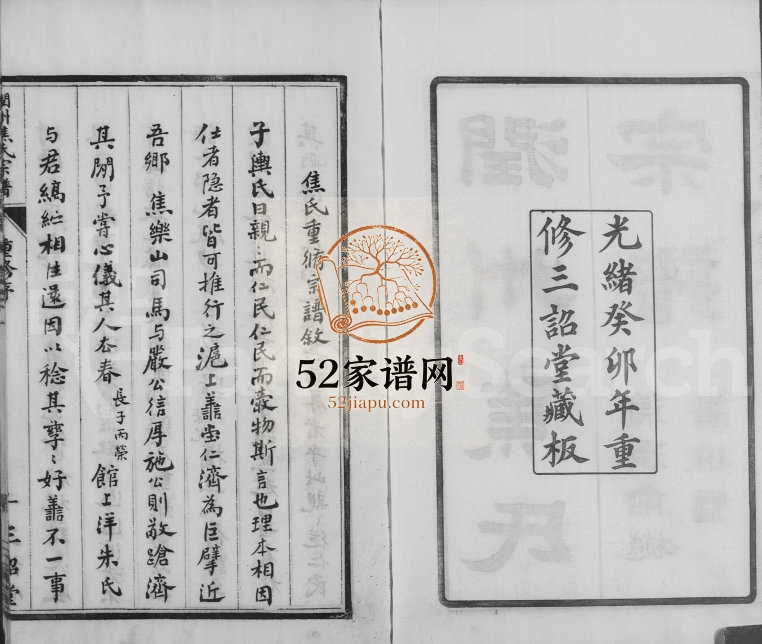 光緒癸卯年重
修三詔堂藏板
焦氏重脩宗譜敘
子輿氏曰親親而仁民仁民而愛物斯言也理本相因
仕者隐者皆可推行之滬上善堂仁濟為巨擘近
吾鄉 焦樂山司馬与嚴公信厚施公則敬蹌濟
其閒予嘗心儀其人去春長子丙榮館上洋朱氏
与君縞紵相往還因以稔其孳〻好善不一事
潤州焦氏宗譜
重修序
一
三詔堂
52家谱网
52jiapu.com